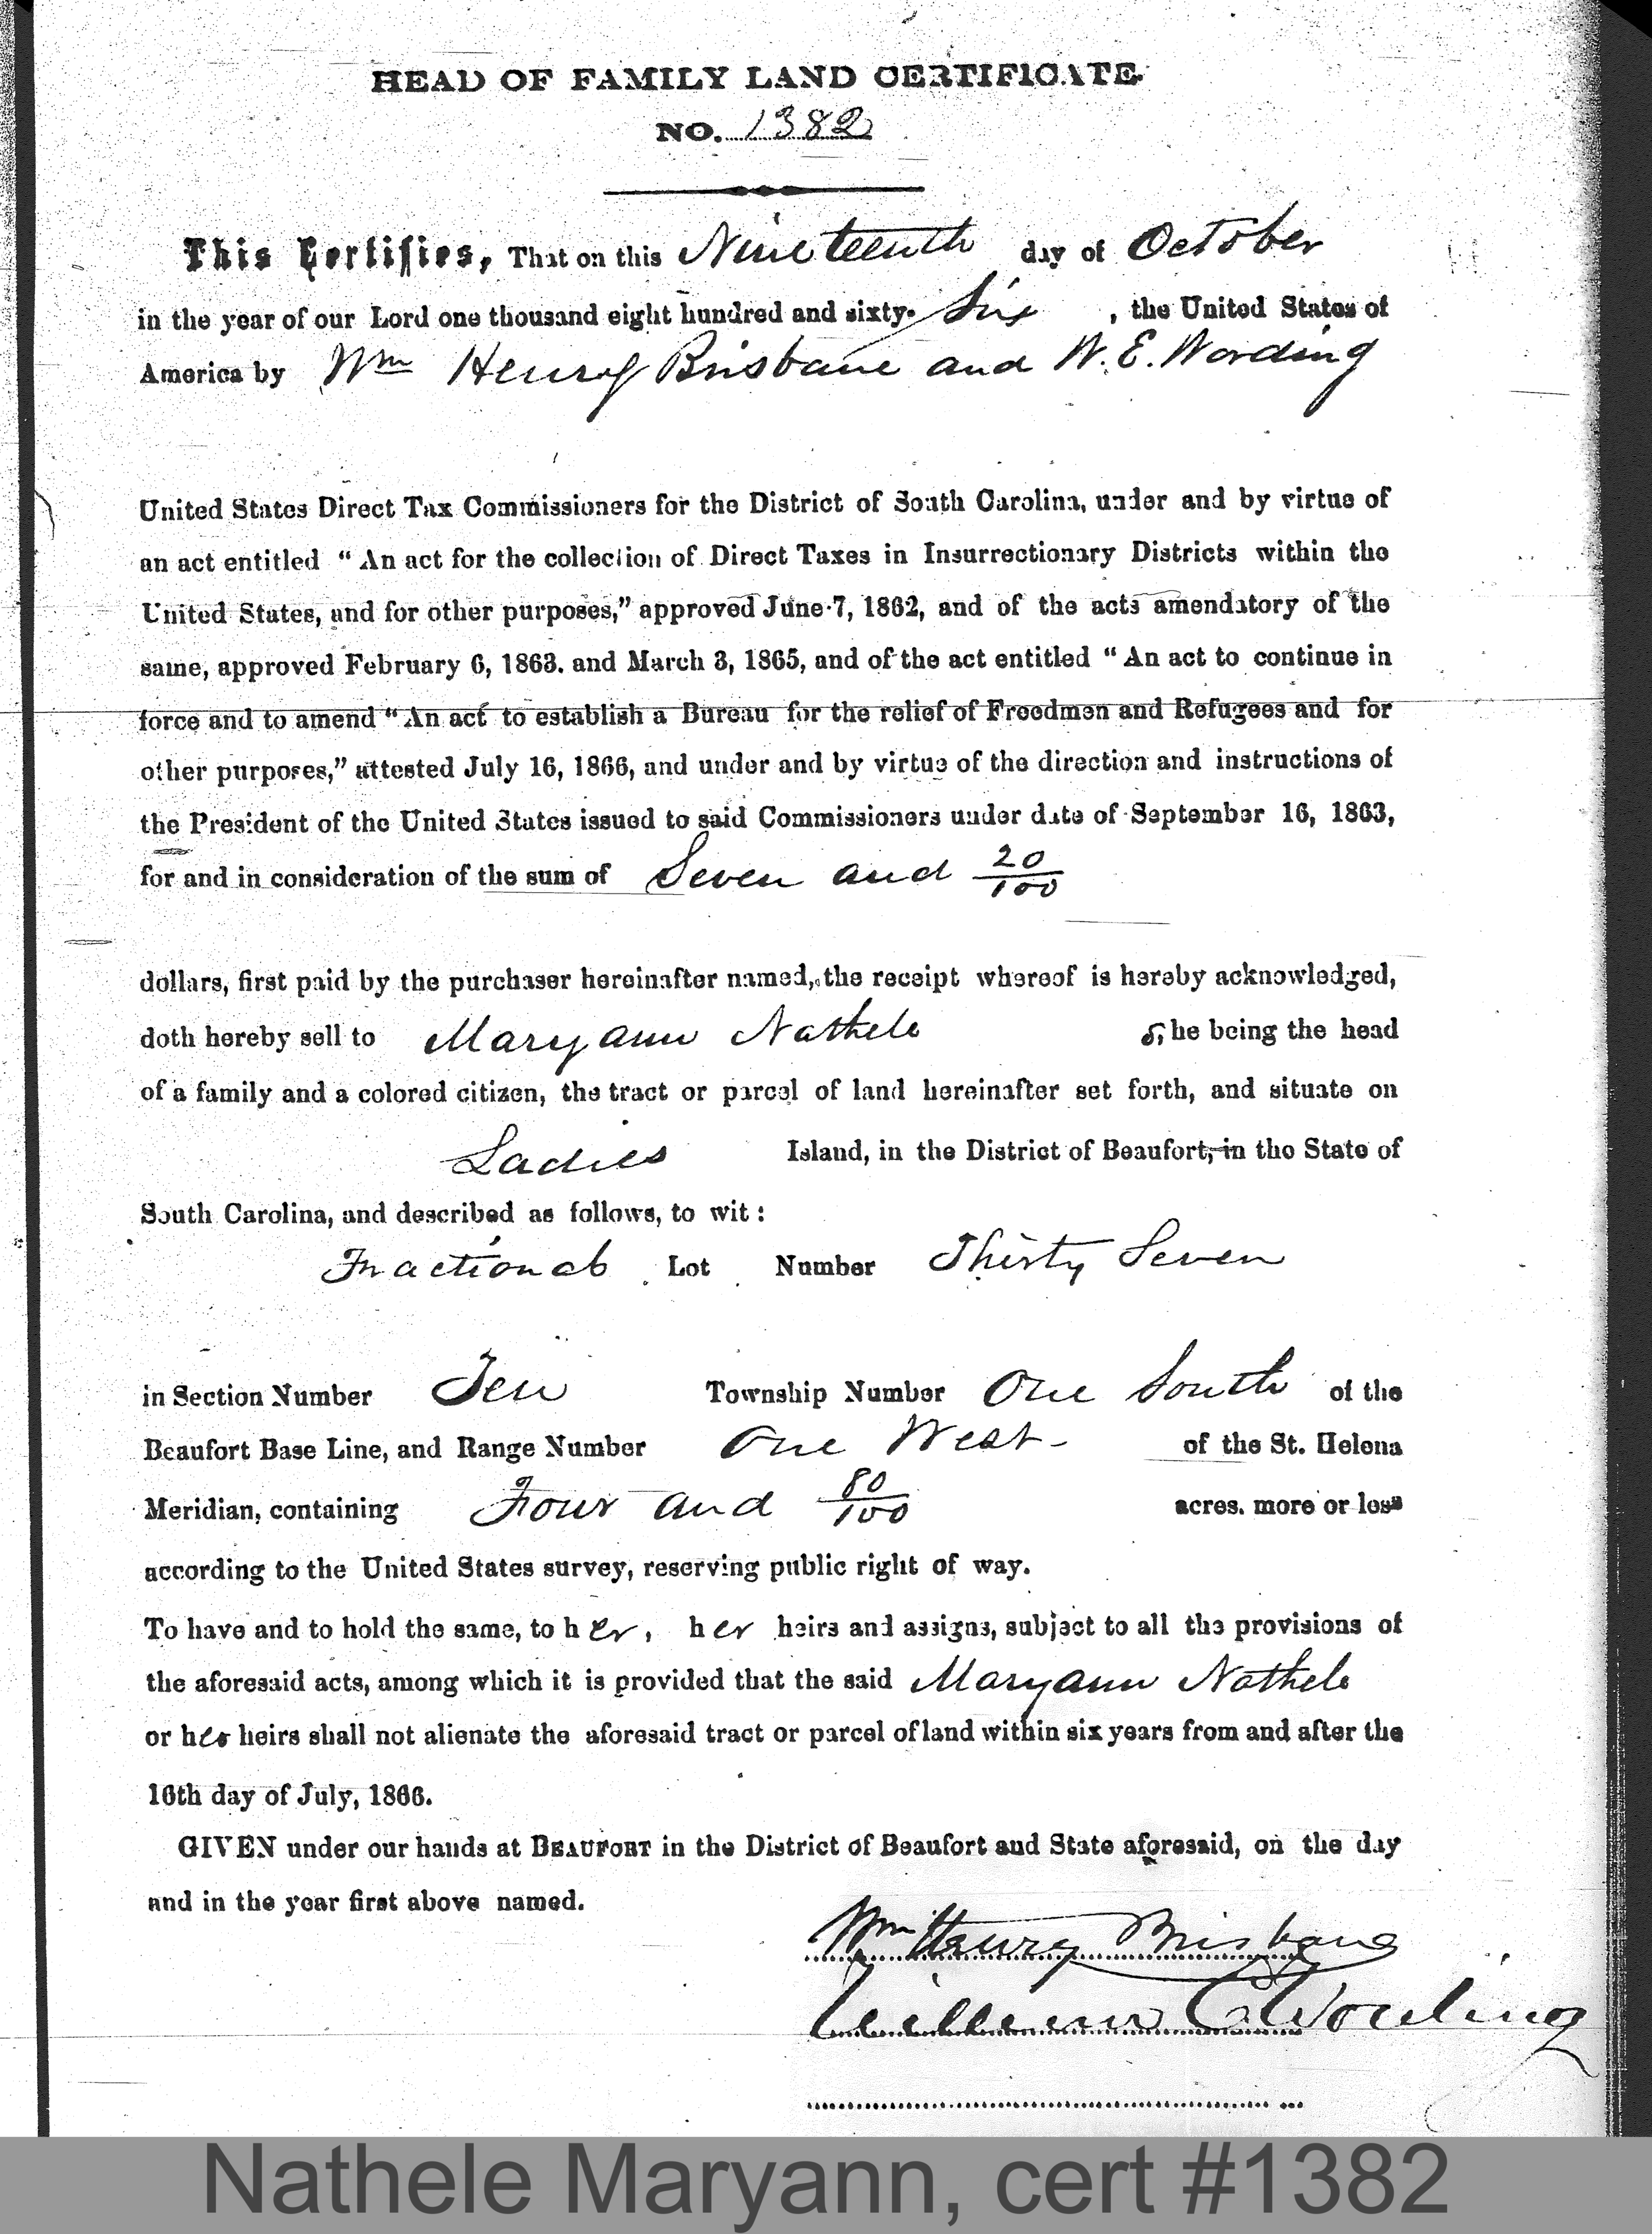 HEAD OF FAMILY LAND CERTIFICATE.
NO. 1382
This Certifies, That on this Nineteenth day of October
in the year of our Lord one thousand eight hundred and sixty-Six, the United States of
America by Wm Henry Brisbane and W. E. Wording
United States Direct Tax Commissioners for the District of South Carolina, under and by virtue of
an act entitled "An act for the collection of Direct Taxes in Insurrectionary Districts within the
United States, and for other purposes," approved June 7, 1862, and of the acts amendatory of the
same, approved February 6, 1863. and March 3, 1865, and of the act entitled "An act to continue in
force and to amend "An act to establish a Bureau for the relief of Freedmen and Refugees and for
other purposes," attested July 16, 1866, and under and by virtue of the direction and instructions of
the President of the United States issued to said Commissioners under date of September 16, 1863,
for and in consideration of the sum of Seven and 20/100
dollars, first paid by the purchaser hereinafter named, the receipt whereof is hereby acknowledged,
doth hereby sell to Maryann Nathele She being the head
of a family and a colored citizen, the tract or parcel of land hereinafter set forth, and situate on
Ladies Island, in the District of Beaufort, in the State of
South Carolina, and described as follows, to wit:
Fractional Lot Number Thirty Seven
in Section Number Ten Township Number One South of the
Beaufort Base Line, and Range Number One West of the St. Helena
Meridian, containing Four and 80/100 acres. more or less
according to the United States survey, reserving public right of way.
To have and to hold the same, to her, her heirs and assigns, subject to all the provisions of
the aforesaid acts, among which it is provided that the said Maryann Nathele
or her heirs shall not alienate the aforesaid tract or parcel of land within six years from and after the
16th day of July, 1866.
GIVEN under our hands at BEAUFORT in the District of Beaufort and State aforesaid, on the day
and in the year first above named.
Wm Henry Brisbane
William E Wording
Nathele Maryann, cert #1382